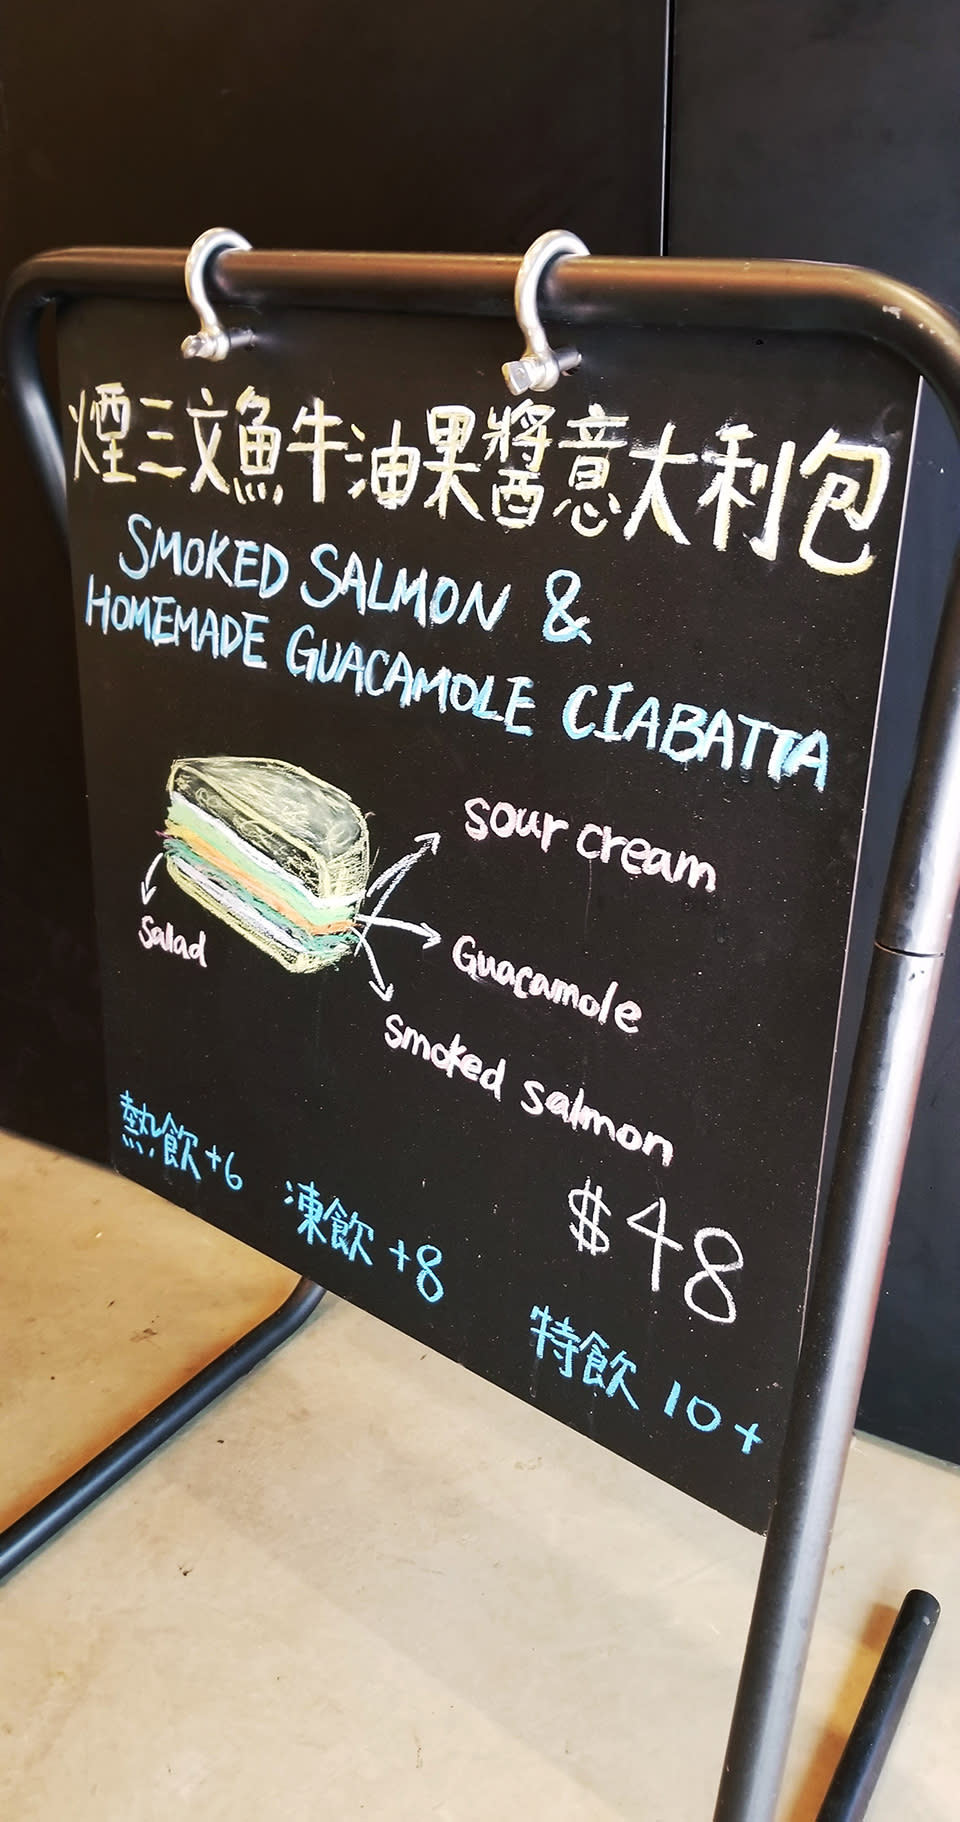 煙三文魚牛油果醬意大利包
SMOKED SALMON &
HOMEMADE GUACAMOLE CIABATTA
sour cream
Salad
Guacamole
smoked salmon
$48
熱飲+6
凍飲+8
特飲 10+